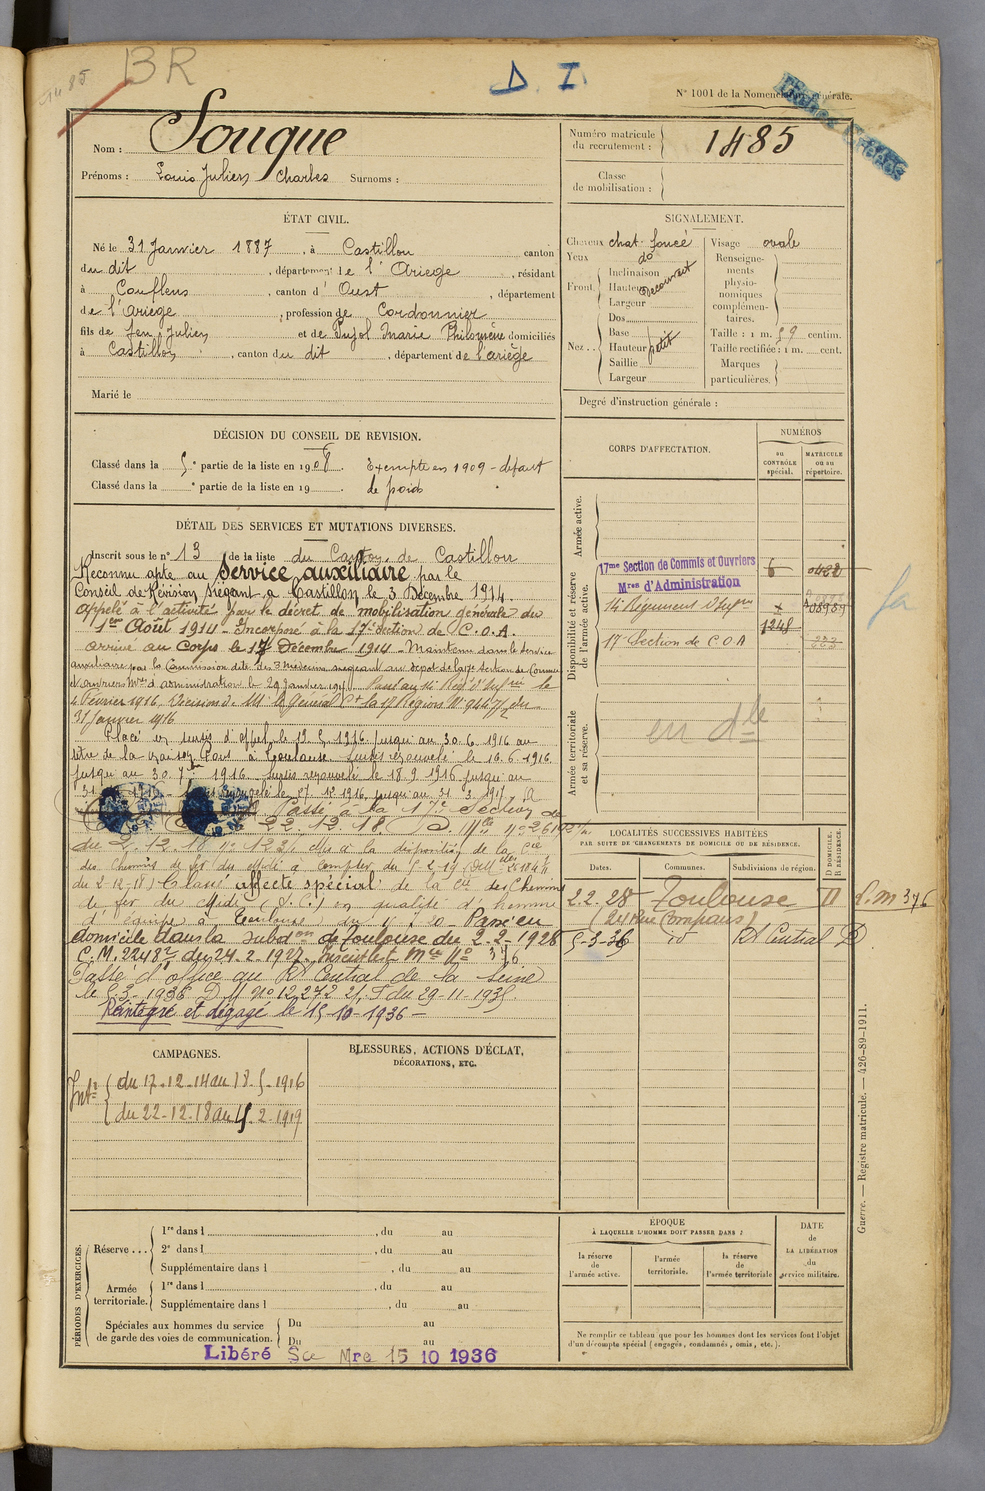 1485
BR
D. I.
N° 1001 de la Nomenclature générale.
Nom : Souque
Prénoms : Louis Julien Charles Surnoms :
Numéro matricule du recrutement : 1485
Classe de mobilisation :
ÉTAT CIVIL.
Né le 31 Janvier 1887, à Castillon canton
du dit, département de l'Ariège, résidant
à Couflens, canton d' Oust, département
de l'Ariège, profession de Cordonnier
fils de feu Julien et de Pujol Marie Philomène domiciliés
à Castillon, canton du dit, département de l'ariège
Marié le
SIGNALEMENT.
Cheveux chat. foncé
Yeux do
Front Inclinaison
Hauteur Découvert
Largeur
Nez Dos
Base
Hauteur petit
Saillie
Largeur
Visage ovale
Renseignements physionomiques complémentaires.
Taille : 1 m. 59 centim.
Taille rectifiée : 1 m. cent.
Marques particulières.
Degré d'instruction générale :
DÉCISION DU CONSEIL DE REVISION.
Classé dans la 5e partie de la liste en 1908. Exempté en 1909 - défaut
Classé dans la e partie de la liste en 19 . de poids
DÉTAIL DES SERVICES ET MUTATIONS DIVERSES.
Inscrit sous le n° 13 de la liste du Canton de Castillon
Reconnu apte au Service auxiliaire par le
Conseil de Révision siégeant à Castillon le 3 Décembre 1914.
Appelé à l'activité par le décret de mobilisation générale du
1er Août 1914 - Incorporé à la 17e Section de C.O.A.
arrivé au corps le 17 Décembre 1914 - Maintenu dans le service
auxiliaire par la Commission dite des 3 Médecins siégeant au dépôt de la 17e Section de Commis
et ouvriers Mres d'administration le 29 Janvier 191 Passé au 14 Régt d'Infrie le
4 Février 1916. Décision de Mr le Général Ct la 17 Région N° 9447 du
31 Janvier 1916
Placé en sursis d'appel le 19.5.1916 jusqu'au 30.6.1916 au
titre de la maison à Toulouse. Sursis renouvelé le 16.6.1916
jusqu'au 30.7bre 1916. Sursis renouvelé le 18.9.1916 jusqu'au
31 renouvelé le 27.12.1916, jusqu'au 31.3.1917
Passé à la 17e Section de
22.12.18.
du 2.12.18 mis à la disposition de la Cie
des Chemins de fer du Midi à compter du 5-2-19
du 2-12-18) Classé affecté spécial de la Cie des Chemins
de fer du Midi (S.C.) en qualité d'homme
d'équipe à Toulouse du Passé en
domicile dans la subdon de Toulouse du 2-2-1928
C.M. 2248 du 24.2.1927. Inscrit Mle N° 376
Passé d'office au Rt Central de la Seine
le 5.3.1936 D.M N° 12,272 du 29-11-1935.
Réintégré et dégagé le 15-10-1936 -
CORPS D'AFFECTATION.
NUMÉROS
au CONTRÔLE spécial.
MATRICULE ou au répertoire.
Armée active.
Disponibilité et réserve de l'armée active.
17me Section de Commis et Ouvriers
Mres d'Administration
6
14 Régiment d'Infrie
17 Section de C O A
1248
Armée territoriale et sa réserve.
en dle
LOCALITÉS SUCCESSIVES HABITÉES
PAR SUITE DE CHANGEMENTS DE DOMICILE OU DE RÉSIDENCE.
D DOMICILE.
R RÉSIDENCE.
Dates. Communes. Subdivisions de région.
2.2.28 Toulouse D L.m 376
(24 Rue Compans)
5-3-36 id Rt Central D
CAMPAGNES.
Intr
du 17.12.14 au 18.5.1916
du 22.12.18 au 5.2.1919
BLESSURES, ACTIONS D'ÉCLAT,
DÉCORATIONS, ETC.
PÉRIODES D'EXERCICES.
Réserve ... 1re dans l , du au
2e dans l , du au
Supplémentaire dans l , du au
Armée territoriale. 1re dans l , du au
Supplémentaire dans l , du au
Spéciales aux hommes du service de garde des voies de communication. Du au
Du au
Libéré Sce Mre 15 10 1936
ÉPOQUE
À LAQUELLE L'HOMME DOIT PASSER DANS :
la réserve de l'armée active.
l'armée territoriale.
la réserve de l'armée territoriale
DATE de LA LIBÉRATION du service militaire.
Ne remplir ce tableau que pour les hommes dont les services font l'objet
d'un décompte spécial (engagés, condamnés, omis, etc.).
Guerre. — Registre matricule. — 426-89-1911.